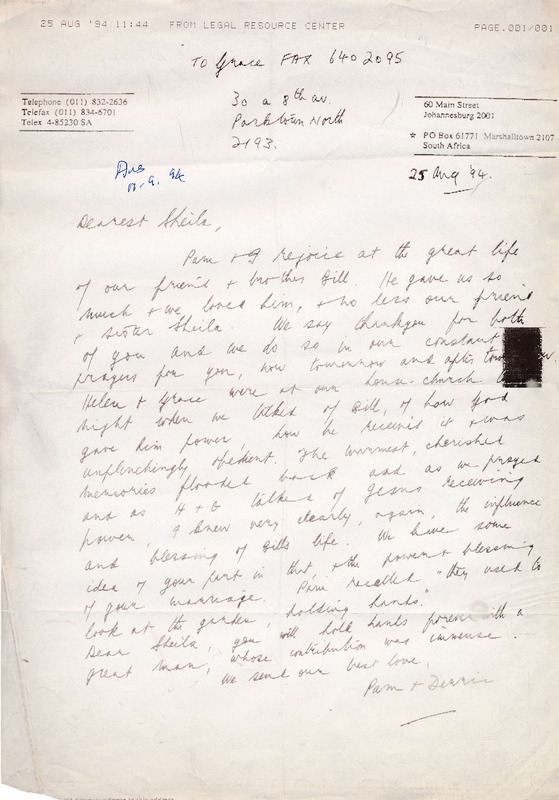 25 AUG '94 11:44 FROM LEGAL RESOURCE CENTER PAGE.001/001
To Grace FAX 640 2095
Telephone (011) 832-2636
Telefax (011) 834-6701
Telex 4-85230 SA
30 a 8th av.
Parktown North
2193.
60 Main Street
Johannesburg 2001
☆ PO Box 61771 Marshalltown 2107
South Africa
25 Aug '94.
Dearest Sheila,
Pam + I rejoice at the great life
of our friend + brother Bill. He gave us so
much + we loved him, + no less our friend
+ sister Sheila. We say thankyou for both
of you and we do so in our constant
prayers for you, now tomorrow and after
Helen + Grace were at our house-church
night when we talked of Bill, of how God
gave him power how he received it + was
unflinchingly obedient. The warmest, cherished
memories flooded back and as we prayed
and as H + G talked of Jesus receiving
power, I knew very clearly, again, the influence
and blessing of Bills life. We have some
idea of your part in that, + the power + blessing
of your marriage. Pam recalled "they used to
look at the garden, holding hands."
Dear Sheila, you will hold hands forever with a
great man, whose contribution was immense.
We send our best love,
Pam + Dennis